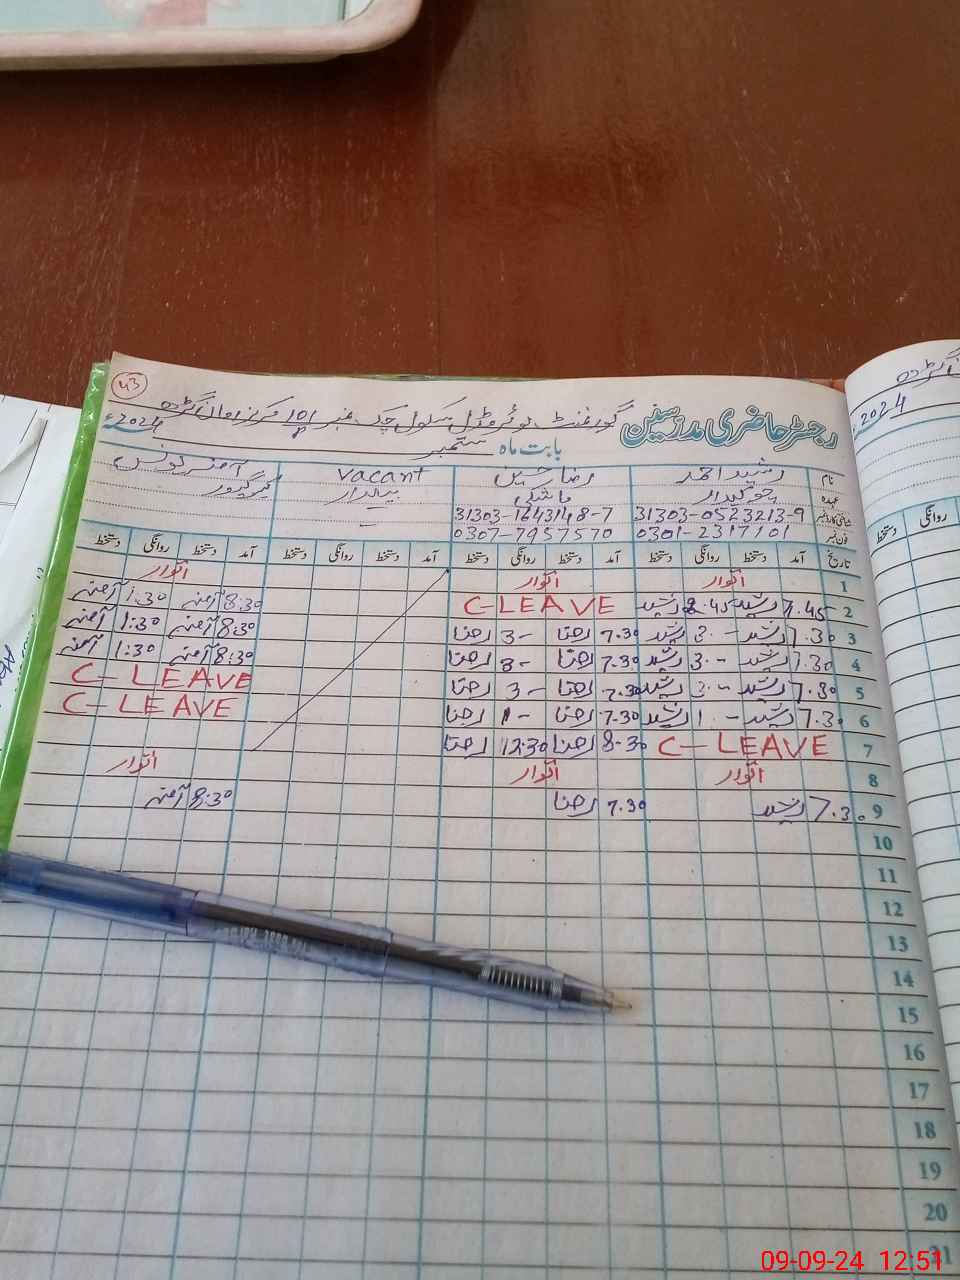 43
رجسٹر حاضری مدرسین گورنمنٹ بوائز ماڈل سکول چک نمبر 101
بابت ماہ ستمبر 2024ء
نام رشید احمد رضا حسین vacant
عہدہ چوکیدار ماشکی بیلدار
شناختی کارڈ نمبر 31303-0523213-9 31303-1643148-7
فون نمبر 0301-2317701 0307-7957570
تاریخ آمد دستخط روانگی دستخط آمد دستخط روانگی دستخط آمد دستخط روانگی دستخط آمد دستخط روانگی دستخط
1 اتوار اتوار اتوار
2 7.45 رشید 2.45 رشید C-LEAVE 8:30 آمنہ 1:30 آمنہ
3 7.30 رشید 3.- رشید 7.30 رضا 3- رضا 8:30 آمنہ 1:30 آمنہ
4 7.30 رشید 3.- رشید 7.30 رضا 3- رضا 8:30 آمنہ 1:30 آمنہ
5 7.30 رشید 3.- رشید 7.30 رضا 3- رضا C-LEAVE
6 7.30 رشید 1.- رشید 7.30 رضا 1- رضا C-LEAVE
7 C-LEAVE 8-30 رضا 12:30 رضا
8 اتوار اتوار اتوار
9 7.30 رشید 7.30 رضا 8:30 آمنہ
10
11
12
13
14
15
16
17
18
19
20
21
2024
روانگی دستخط
09-09-24 12:51